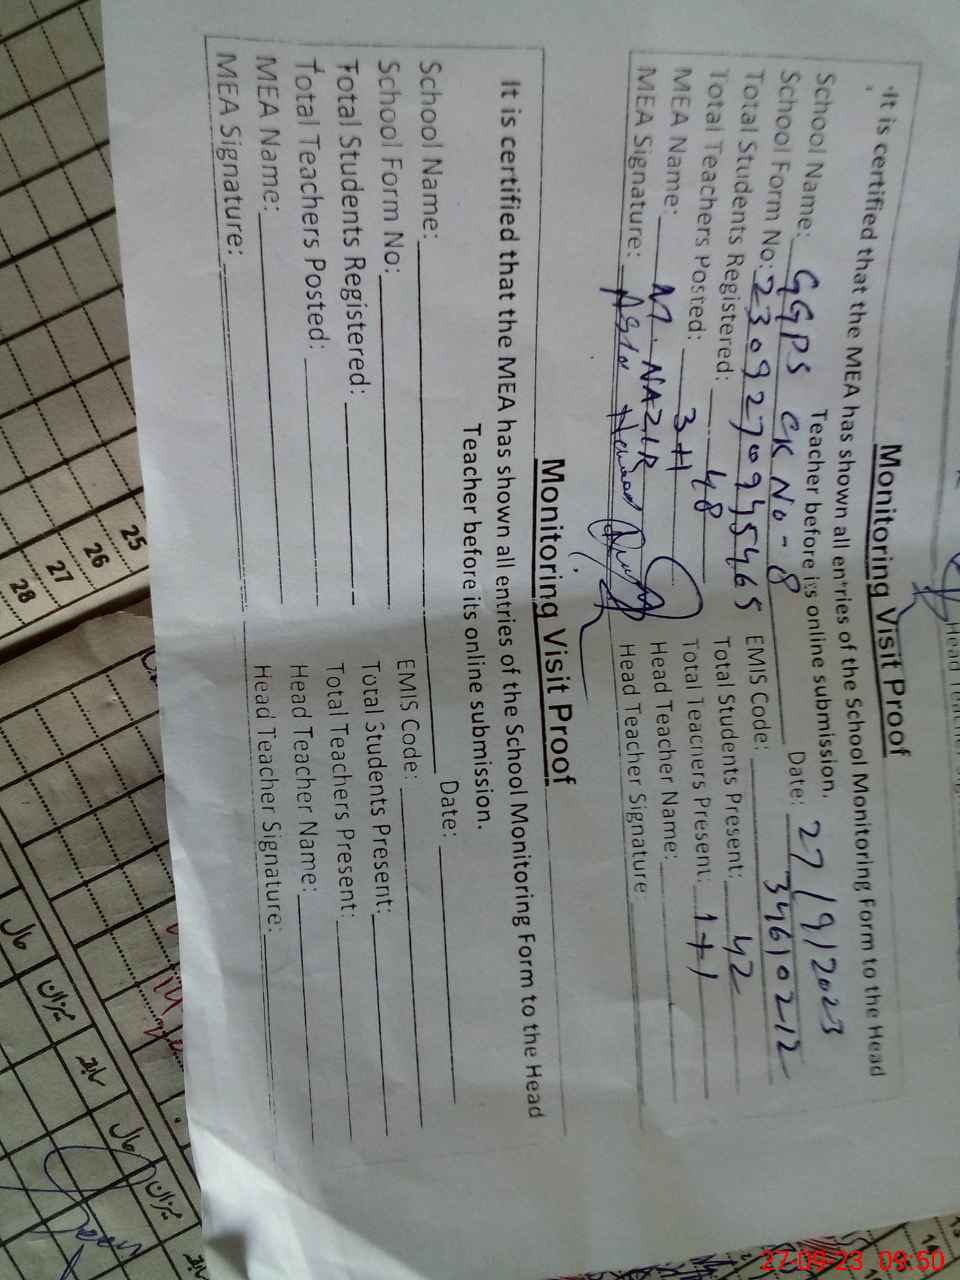 Monitoring Visit Proof
It is certified that the MEA has shown all entries of the School Monitoring Form to the Head
Teacher before its online submission.
School Name: GGPS CK No-8 Date: 27/9/2023
School Form No: 23092709945465 EMIS Code: 34610212
Total Students Registered: 48 Total Students Present: 42
Total Teachers Posted: 3+1 Total Teachers Present: 1+1
MEA Name: M. NAZIR Head Teacher Name:
MEA Signature: Head Teacher Signature:
Monitoring Visit Proof
It is certified that the MEA has shown all entries of the School Monitoring Form to the Head
Teacher before its online submission.
School Name: Date:
School Form No: EMIS Code:
Total Students Registered: Total Students Present:
Total Teachers Posted: Total Teachers Present:
MEA Name: Head Teacher Name:
MEA Signature: Head Teacher Signature:
25
26
27
28
حال میزان سابقہ حال میزان سابقہ
27-09-23 09:50